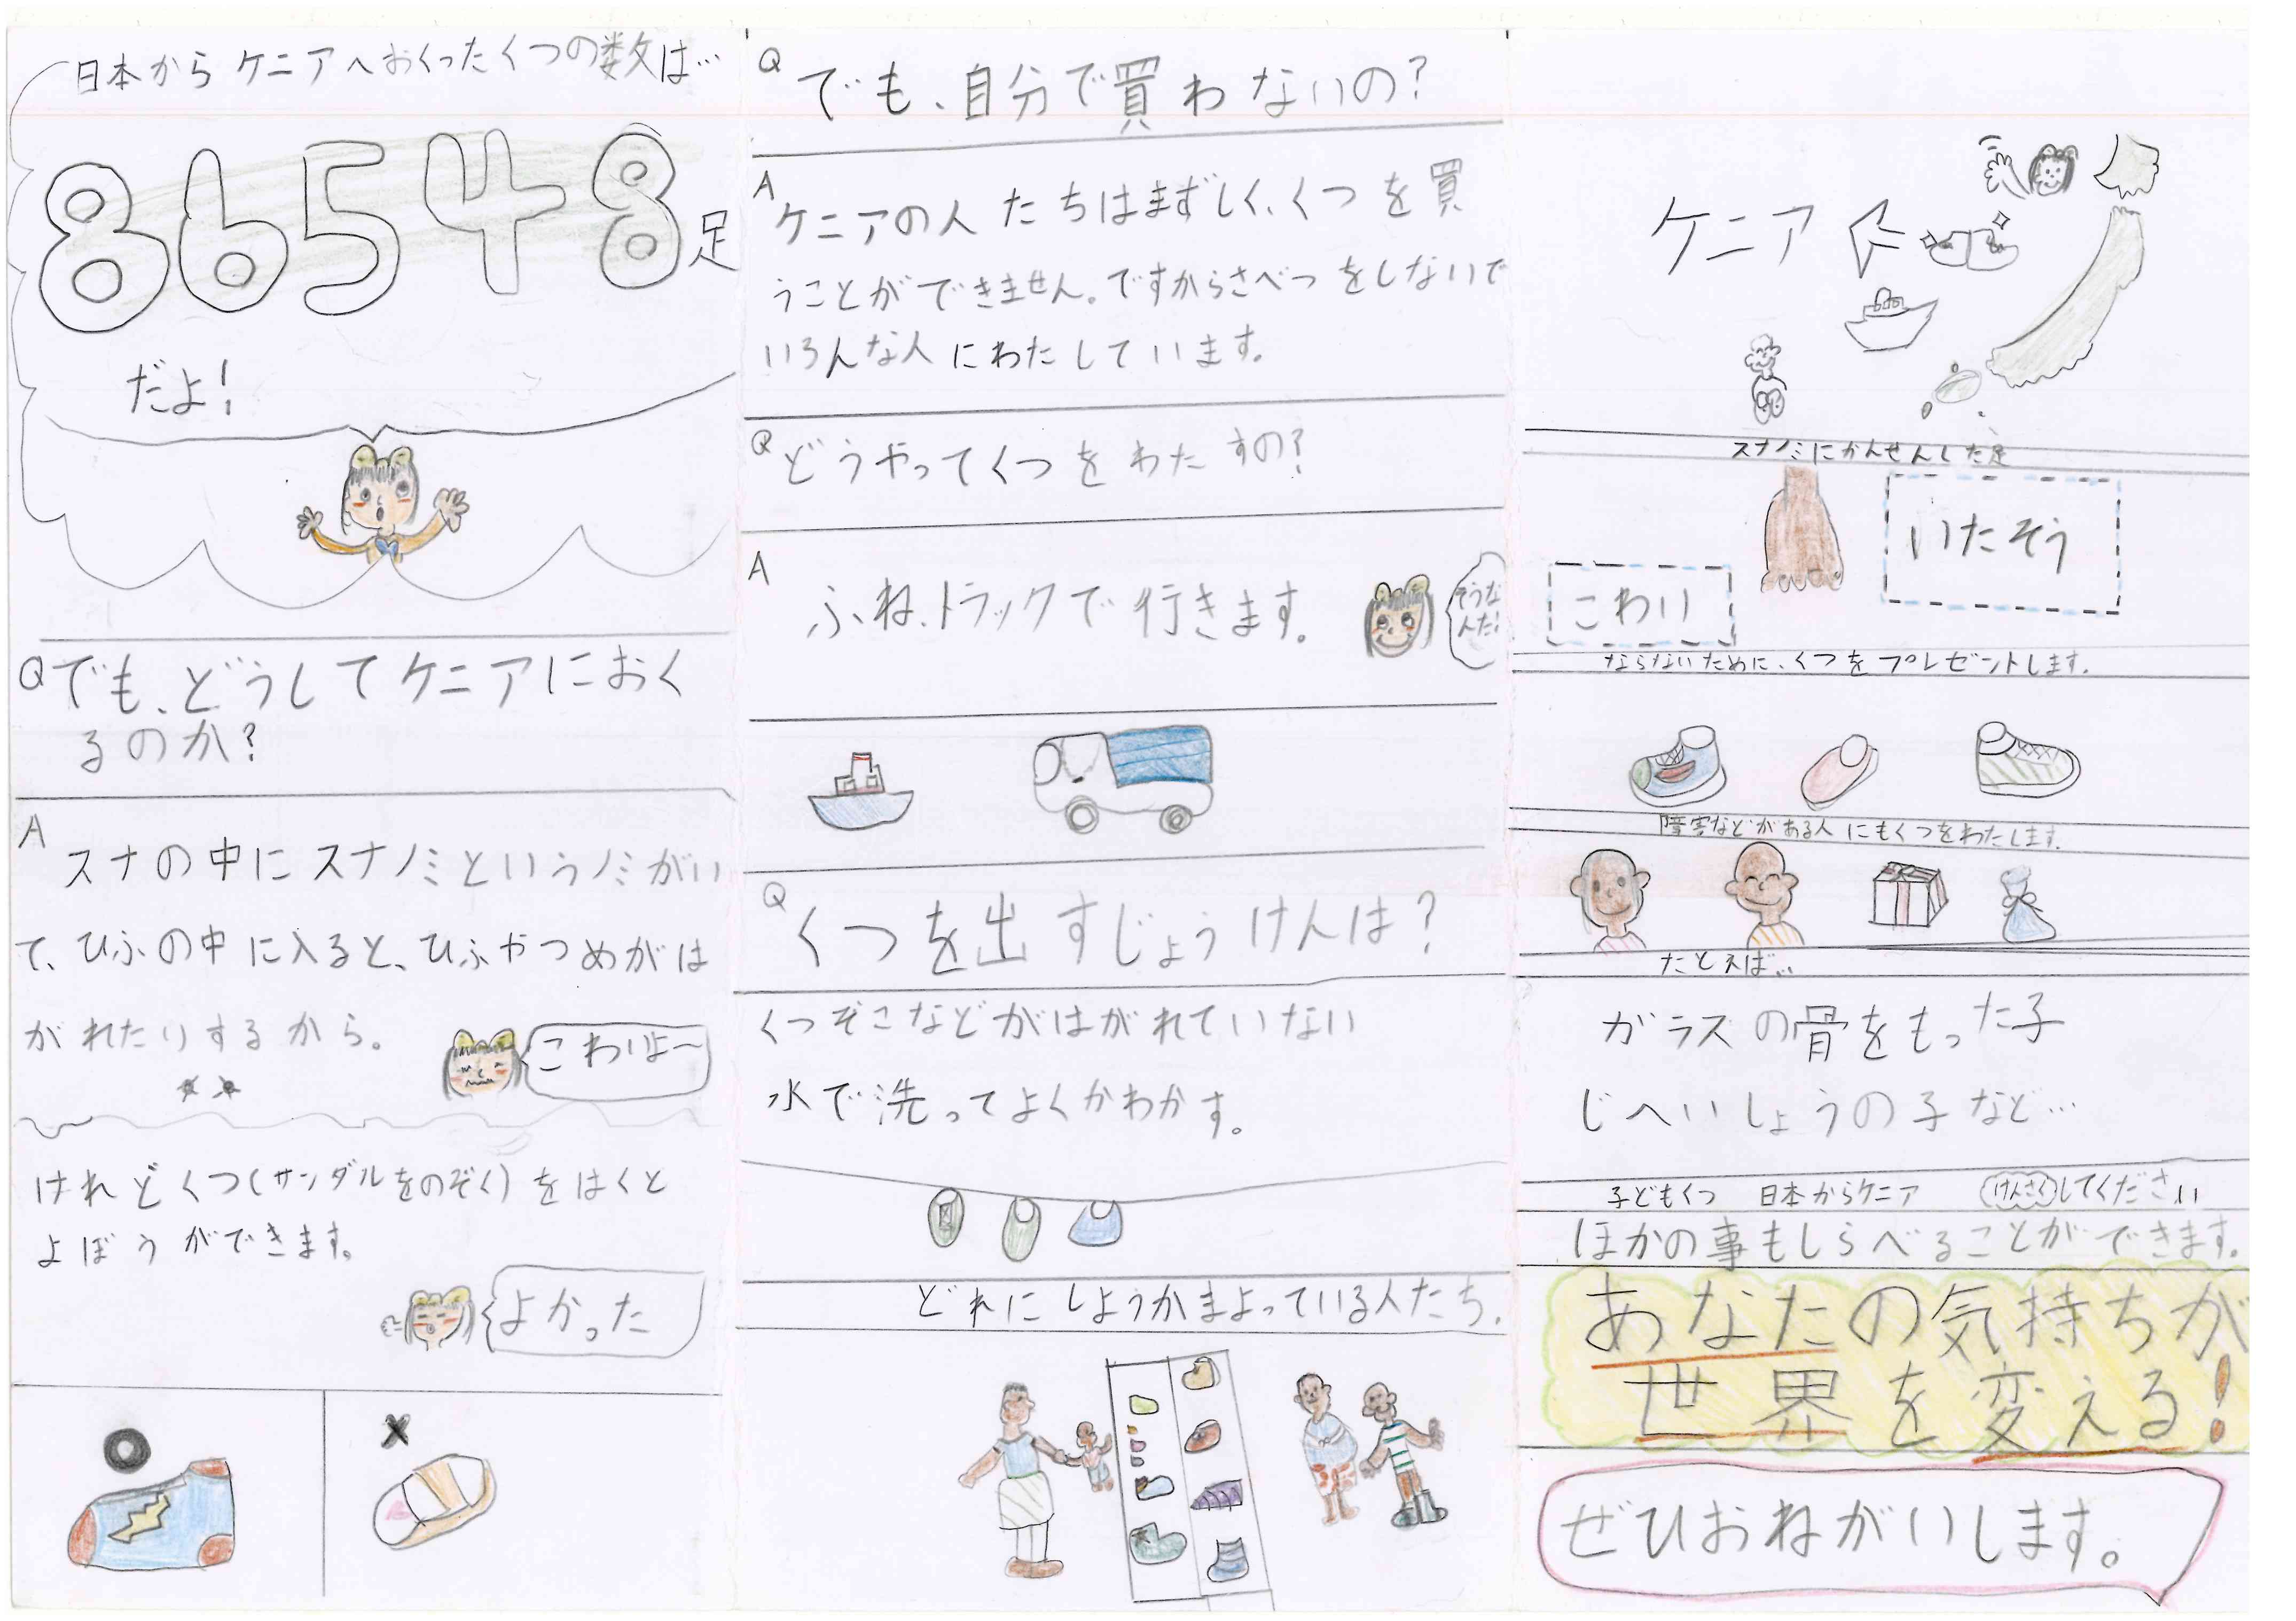 日本から ケニアへおくったくつの数は…
86548足
だよ!
Q でも、どうしてケニアにおく
るのか?
A
スナの中にスナノミというノミがい
て、ひふの中に入ると、ひふやつめがは
がれたりするから。
こわいよ〜
けれどくつ(サンダルをのぞく)をはくと
よぼうができます。
よかった
Q でも、自分で買わないの?
A
ケニアの人たちはまずしく、くつを買
うことができません。ですからさべつをしないで
いろんな人にわたしています。
Q どうやってくつをわたすの?
A
ふね、トラックで行きます。
そうな
んだ!
Q くつを出すじょうけんは?
くつぞこなどがはがれていない
水で洗ってよくかわかす。
どれにしようかまよっている人たち.
ケニア
スナノミにかんせんした足
いたそう
こわい
ならないために、くつをプレゼントします.
障害などがある人にもくつをわたします.
たとえば…
ガラスの骨をもった子
じへいしょうの子など…
子どもくつ 日本からケニア けんさくしてください
ほかの事もしらべることができます.
あなたの気持ちが
世界を変える!
ぜひおねがいします。